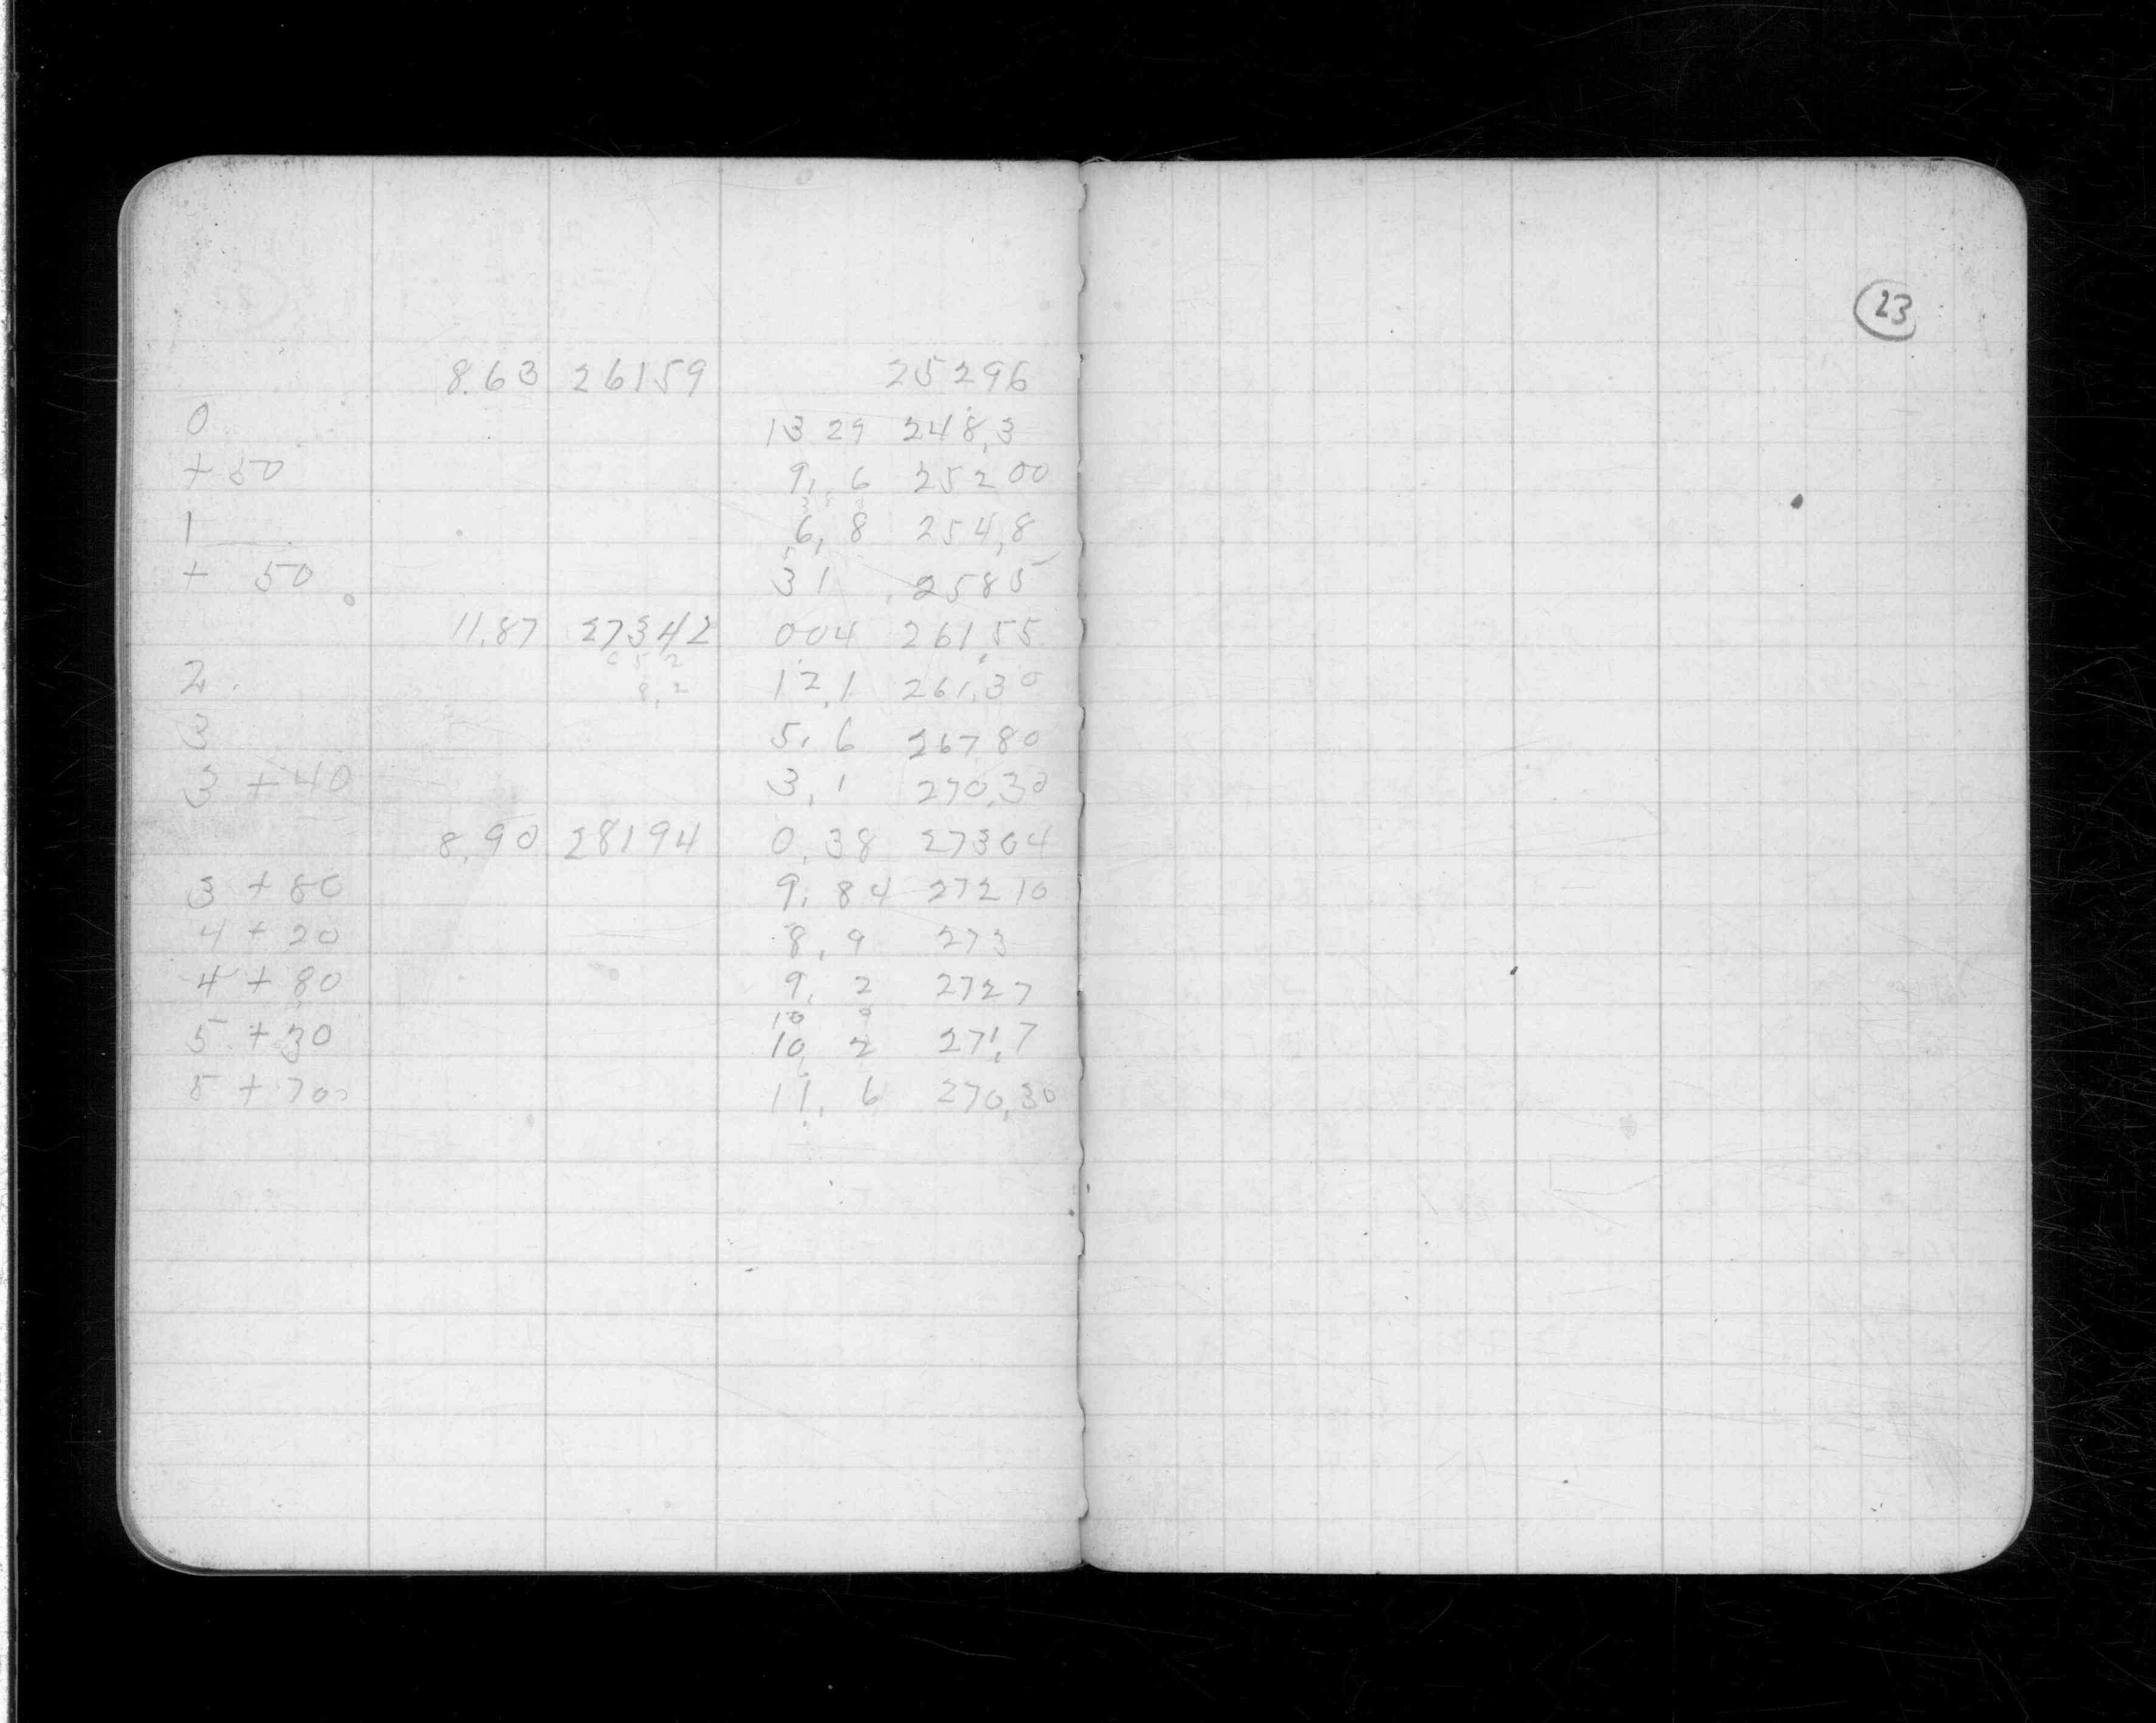 8.63 26159 25296
0 13 29 248,3
+ 50 9, 6 25200
1 6, 8 254,8
+ 50 3 1 2585
11.87 27342 004 261,55
2 12,1 261,30
3 5, 6 267 80
3 + 40 3, 1 270,30
8,90 28194 0,38 27304
3 + 80 9, 84 272 10
4 + 20 8, 9 273
4 + 80 9, 2 2727
10 9
5 + 30 10, 2 271,7
5 + 70 11, 6 270,30
23